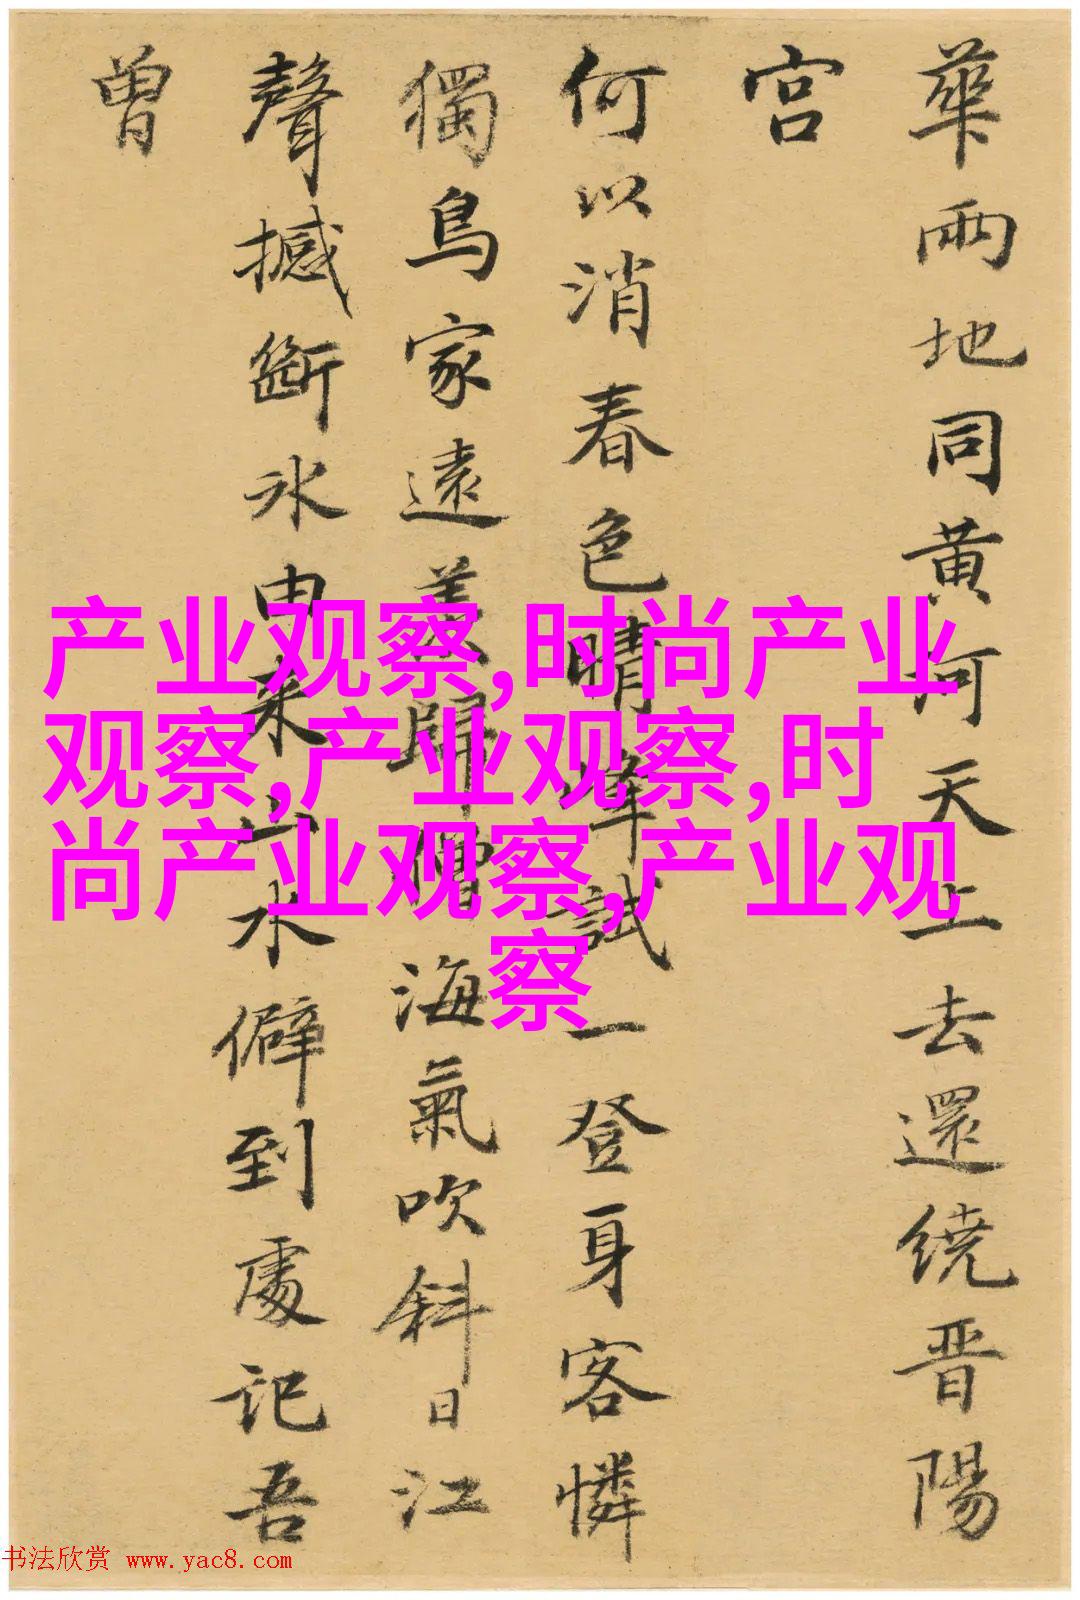 華兩地同黄河天上去還繞晋陽
宫
何以消春色晴峰試一登身客憐
獨鳥家遠羨歸僧海氣吹斜日江
聲撼斷冰由来山水僻到處記吾
曾
产业观察,时尚产业
观察,产业观察,时
尚产业观察,产业观
察
书法欣赏 www.yac8.com